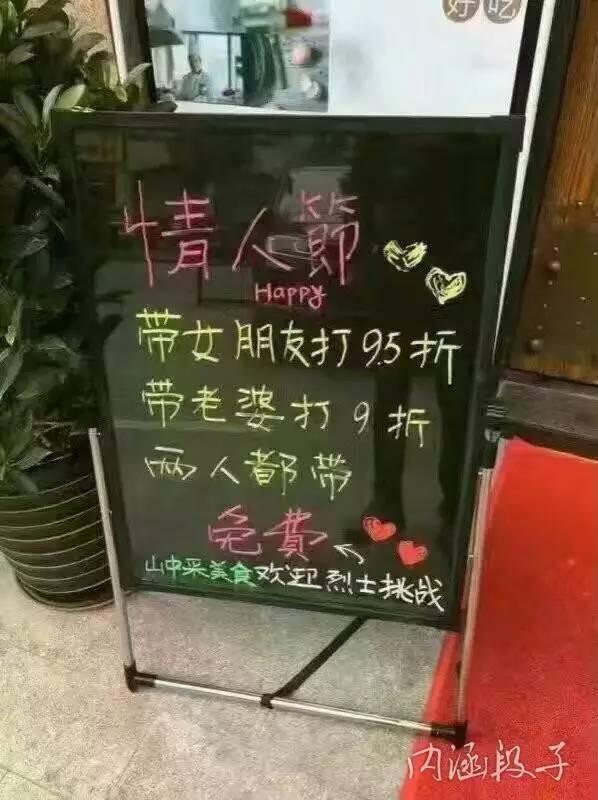 好吃
情人節
Happy
带女朋友打9.5折
带老婆打9折
两人都带
免費
山中采美食欢迎烈士挑战
内涵段子